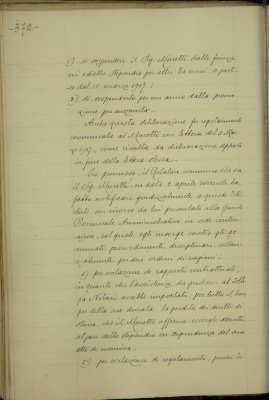 - 372 -
1) di sospendere il Sig. Moretti dalle funzio-
ni e dallo stipendio per altri tre mesi, a parti-
re dal 12 marzo 1907;
2) di sospenderlo per un anno dalla promo-
zione per anzianità.
Anche questa deliberazione fu regolarmente
comunicata al Moretti con lettera del 8 Mar-
zo 1907, come risulta da dichiarazione apposta
in fine della lettera stessa.
Ciò premesso, il Relatore comunica che
il Sig. Moretti, in data 2 aprile corrente ha
fatto notificare giudizialmente a questo Isti-
tuto un ricorso da lui presentato alla Giunta
Provinciale Amministrativa in sede conten-
ziosa, col quale egli insorge contro gli ac-
cennati provvedimenti disciplinari, essen-
zialmente per due ordini di ragioni:
1) per violazione di rapporti contrattuali,
in quanto che l'assistenza da prestarsi al Colle-
gio di Milano avrebbe importato, per tutto il tem-
po della sua durata, la perdita dei diritti di
che il Moretti afferma essergli dovuti
al pari dello stipendio in dipendenza del suo
atto di nomina.
2) per violazione di regolamento, perché la